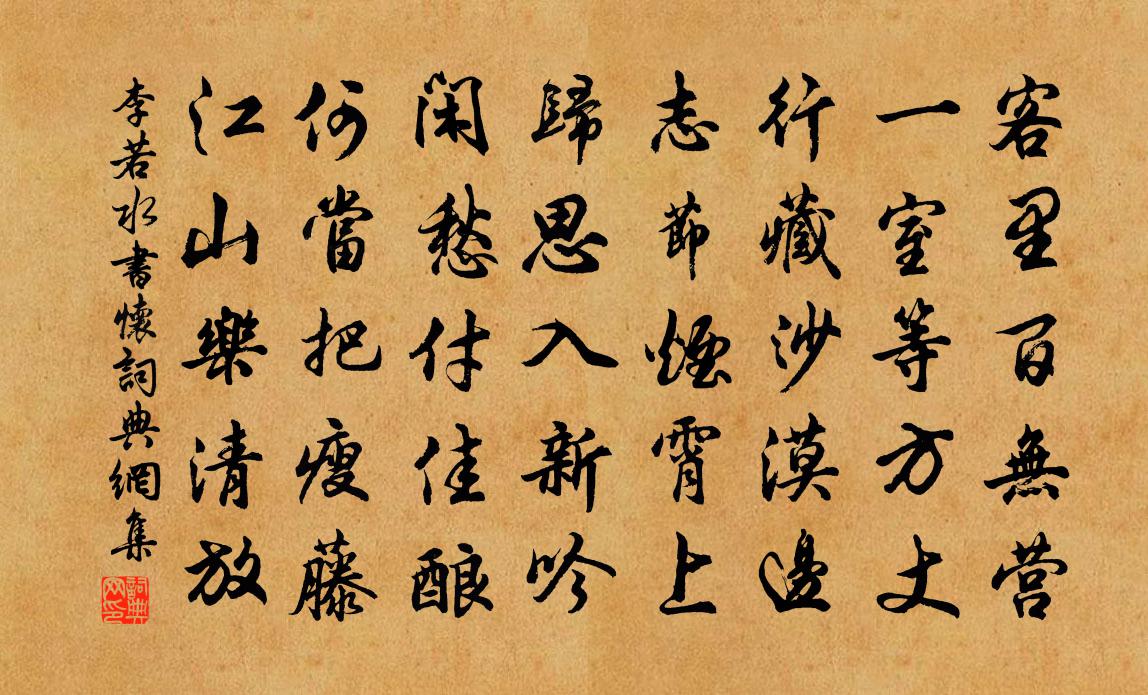 客里百無营
一室等方丈
行藏沙漠邊
志節煙霄上
歸思入新吟
闲愁付佳酿
何當把瘦藤
江山樂清放
李若水書懷詞典網集
詞典网印